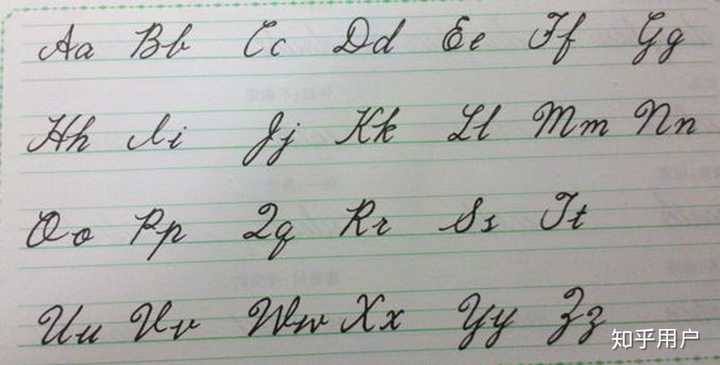 Aa Bb Cc Dd Ee Ff Gg
Hh Ii Jj Kk Ll Mm Nn
Oo Pp Qq Rr Ss Tt
Uu Vv Ww Xx Yy Zz
知乎用户